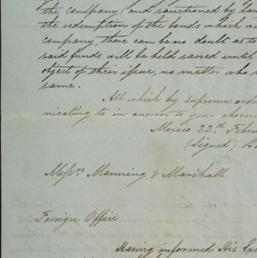 the company (and sanctioned by
the redemption of the bonds which
company, there can be no doubt as to
said funds will be held sacred until
object of their issue, no matter who
same.
All which by supreme
nicating to in answer to your
Mexico 22d
(Signed)
Messrs Manning & Marshall
Foreign Office
Having informed His